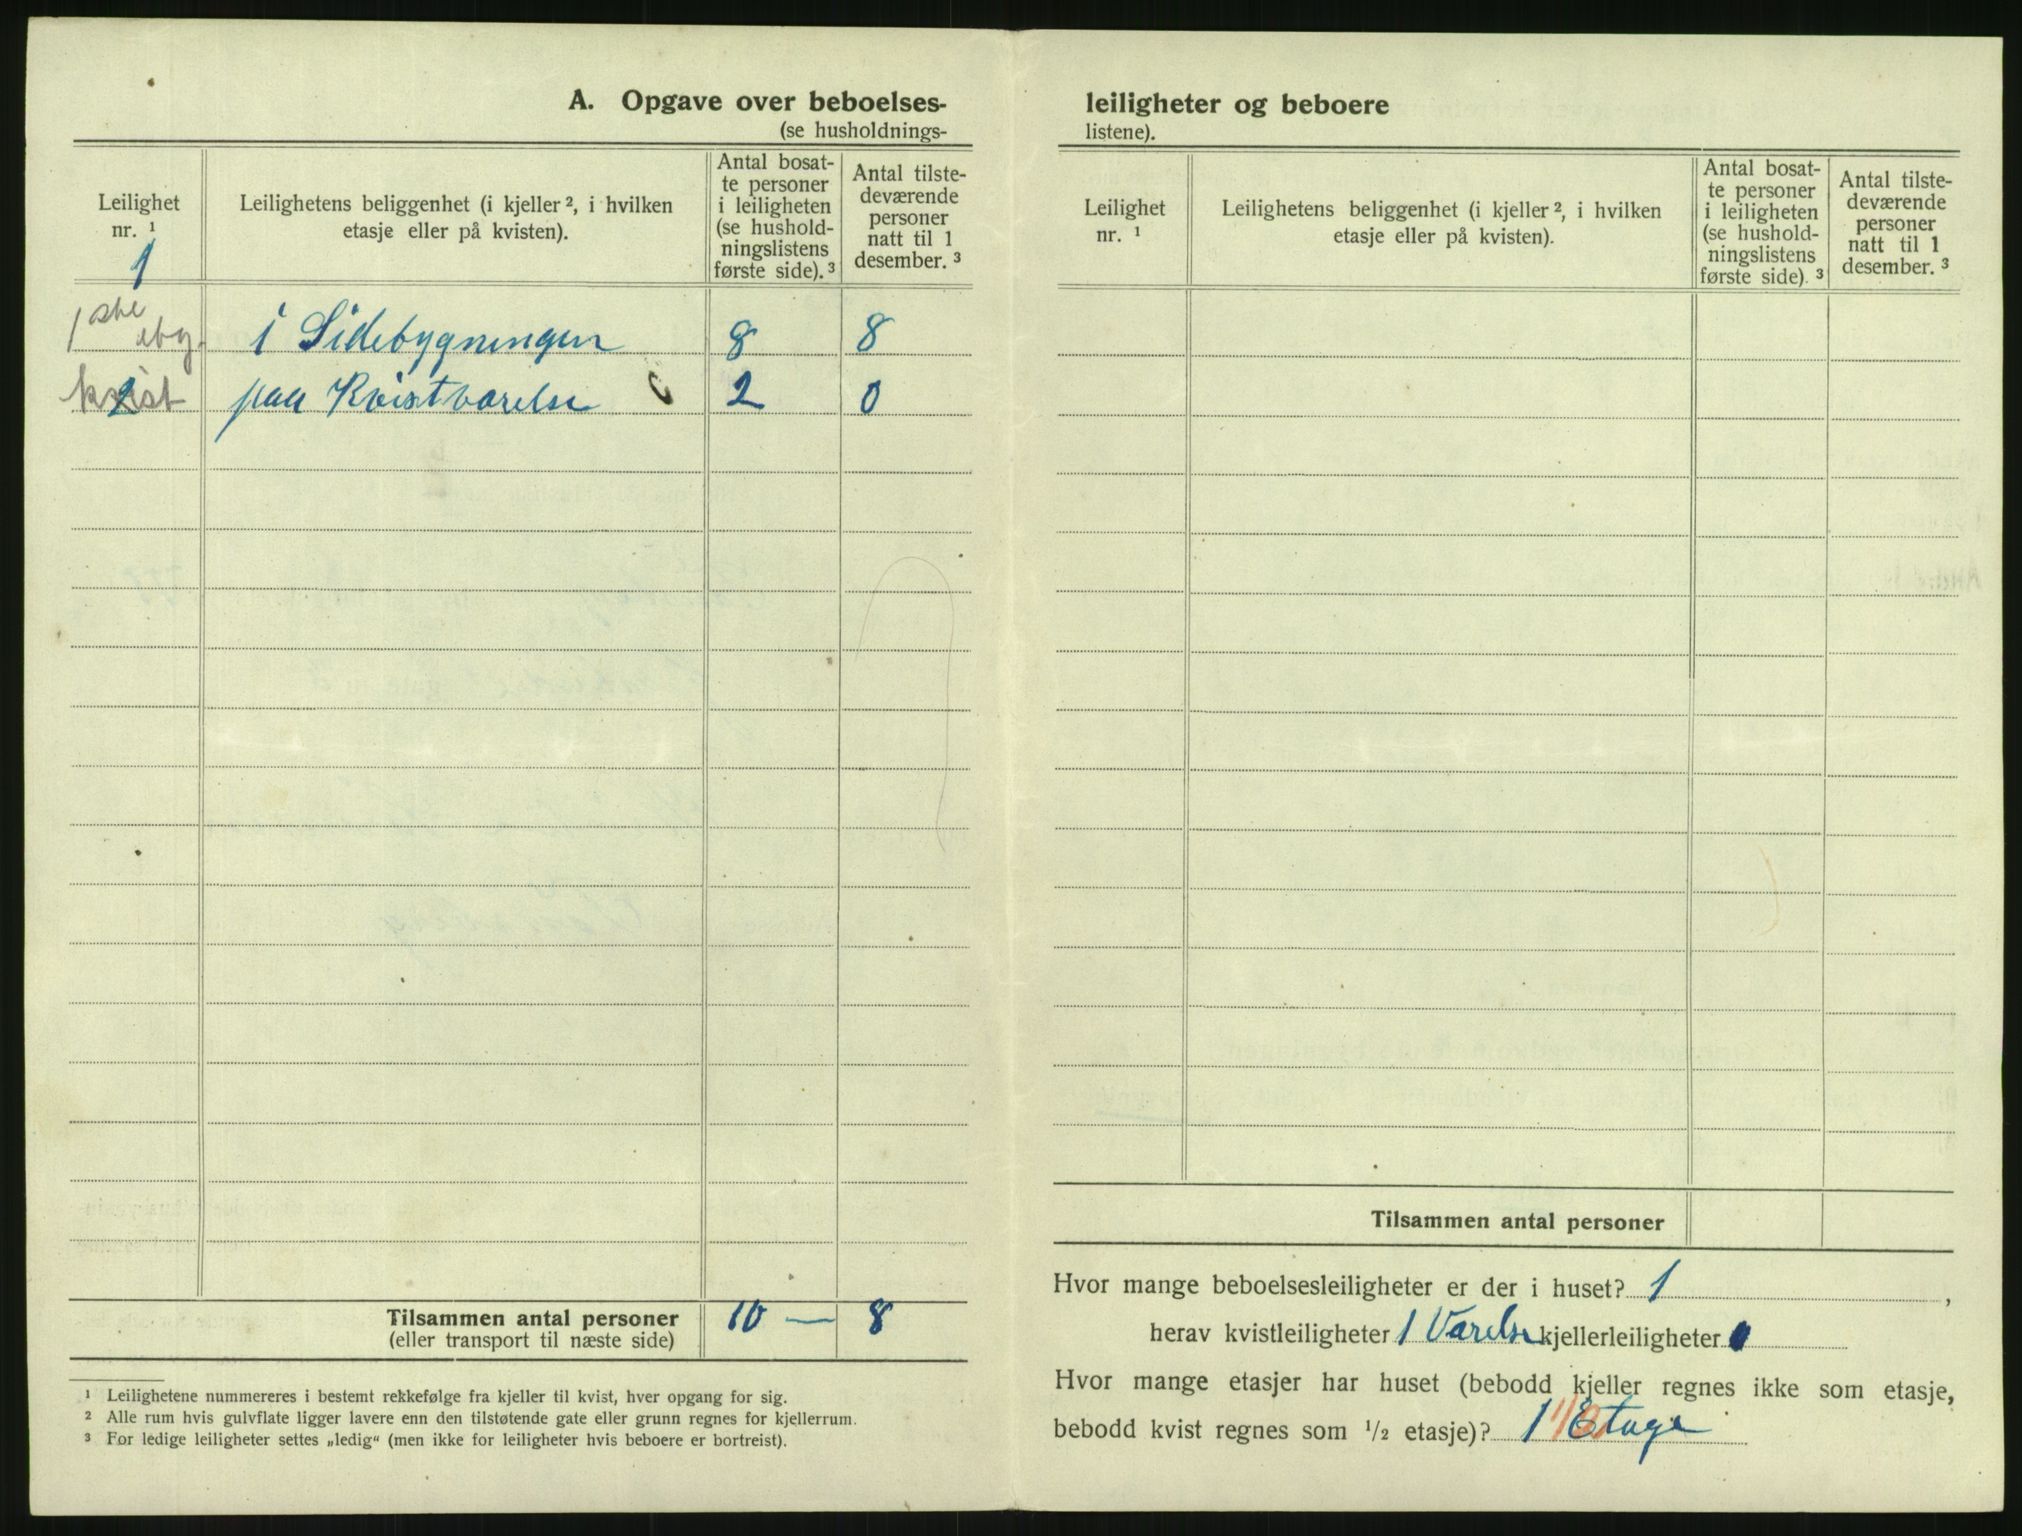 A. Opgave over beboelses-
(se husholdnings-
Leilighet
nr. ¹
1
Leilighetens beliggenhet (i kjeller ², i hvilken
etasje eller på kvisten).
Antal bosat-
te personer
i leiligheten
(se hushold-
ningslistens
første side). ³
Antal tilste-
deværende
personer
natt til 1
desember. ³
1 ste i Sidebygningen 8 8
kvist 2 paa Kvistværelse 2 0
Tilsammen antal personer 10 — 8
(eller transport til næste side)
¹ Leilighetene nummereres i bestemt rekkefølge fra kjeller til kvist, hver opgang for sig.
² Alle rum hvis gulvflate ligger lavere enn den tilstøtende gate eller grunn regnes for kjellerrum.
³ For ledige leiligheter settes „ledig“ (men ikke for leiligheter hvis beboere er bortreist).
leiligheter og beboere
listene).
Leilighet
nr. ¹
Leilighetens beliggenhet (i kjeller ², i hvilken
etasje eller på kvisten).
Antal bosat-
te personer
i leiligheten
(se hushold-
ningslistens
første side). ³
Antal tilste-
deværende
personer
natt til 1
desember. ³
Tilsammen antal personer
Hvor mange beboelsesleiligheter er der i huset? 1 ,
herav kvistleiligheter 1 Værelse kjellerleiligheter 0
Hvor mange etasjer har huset (bebodd kjeller regnes ikke som etasje,
bebodd kvist regnes som ½ etasje)? 1 Etage